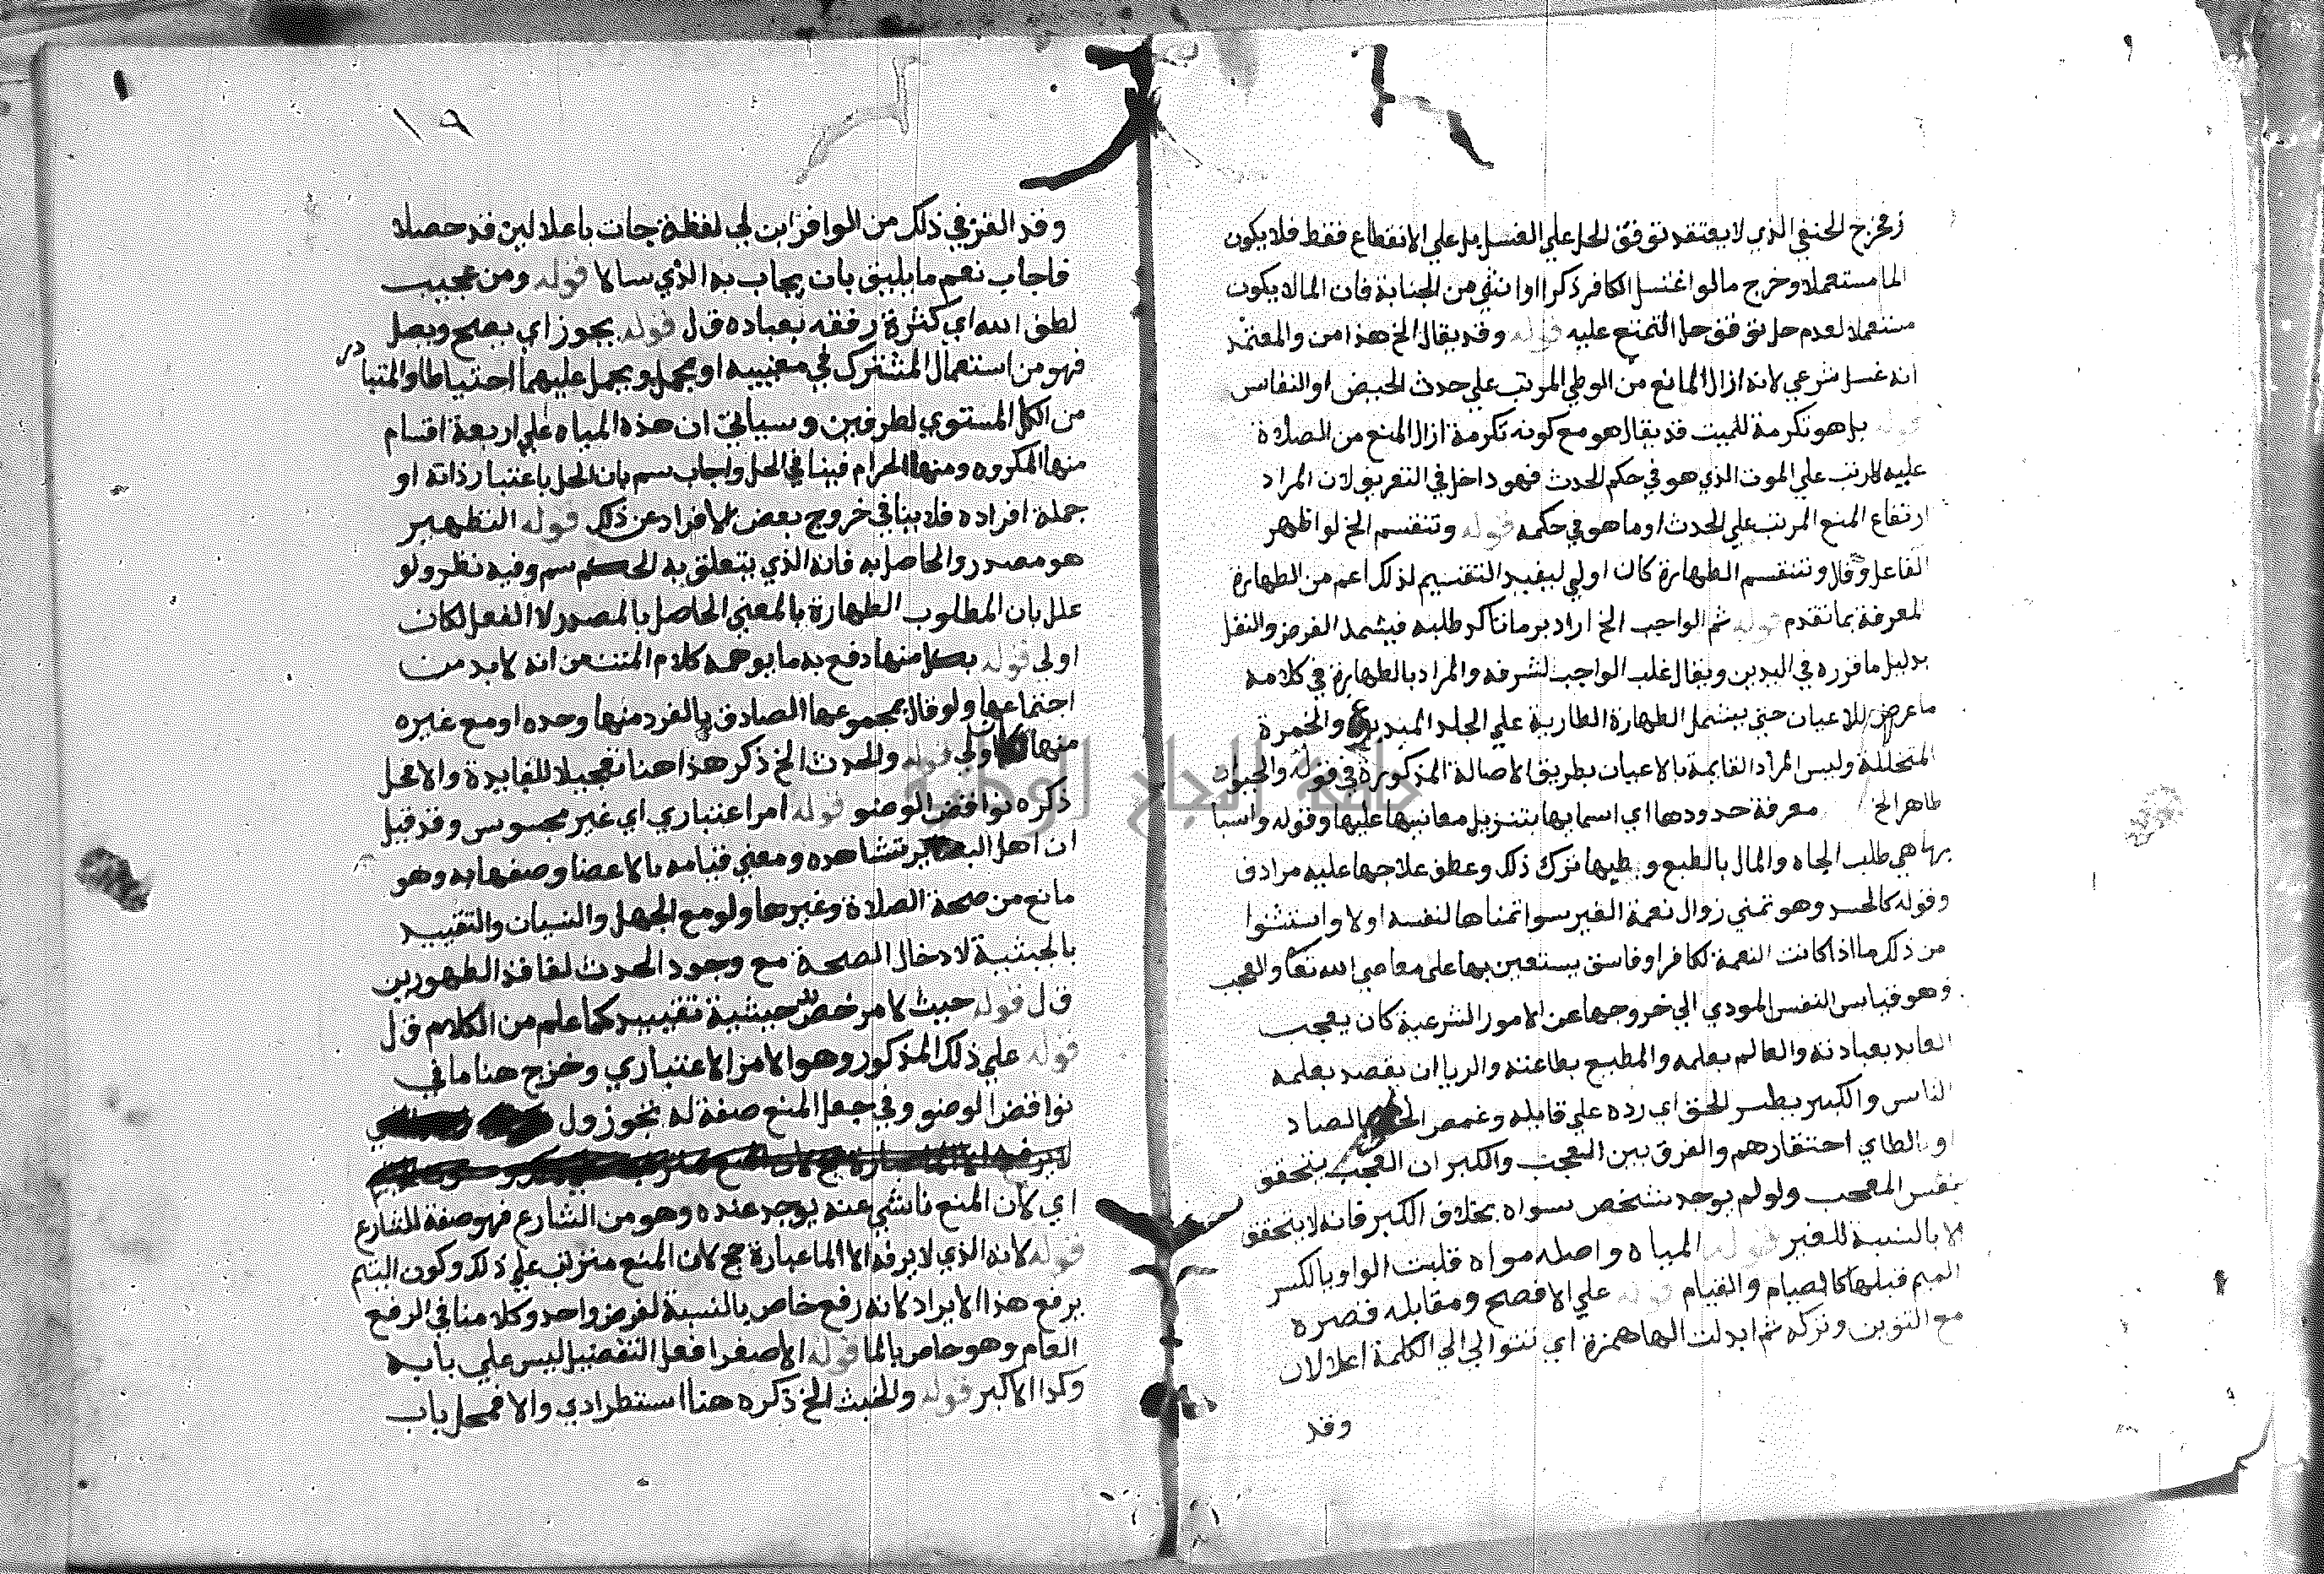 فخرج الحنفي الذي لا يعتقد توقف الحل علي الغسل بل علي الانقطاع فقط فلا يكون
الما مستعملا وخرج ما لو اغتسل الكافر ذكرا او انثي من الجنابة فان الما لا يكون
مستعملا لعدم توقف حل التمتع عليه قوله وقد يقال الخ هذا من والمعتمد
انه غسل شرعي لانه ازال المانع من الوطي المرتب علي حدث الحيض او النفاس
قوله بل هو تكرمة للميت قد يقال هو مع كونه تكرمة ازال المنع من الصلاة
عليه المرتب علي الموت الذي هو في حكم الحدث فهو داخل في التعريف لان المراد
ارتفاع المنع المرتب علي الحدث او ما هو في حكمه قوله وتنقسم الخ لو اظهر
الفاعل وقال وتنقسم الطهارة كان اولي ليفيد التقسيم لذلك اعم من الطهارة
المعرفة بما تقدم قوله ثم الواجب الخ اراد به ما تاكد طلبه فيشمل الفرض والنفل
بدليل ما قرره في اليدين ويقال غلب الواجب لشرفه والمراد بالطهارة في كلامه
ما عرض للاعيان حتي يشمل الطهارة الطارية علي الجلد المندبغ والخمرة
المتخللة وليس المراد القايمة بالاعيان بطريق الاصالة المذكورة في قوله والحيوان
طاهر الخ معرفة حدودها اي اسمايها بتنزيل معانيها عليها وقوله واسبا
بها هي طلب الجاه والمال بالطبع وطبها ترك ذلك وعطف علاجها عليه مرادف
وقوله كالحسد وهو تمني زوال نعمة الغير سوا تمناها لنفسه اولا واستثنوا
من ذلك ما اذا كانت النعمة لكافر او فاسق يستعين بها علي معاصي الله تعا والعجب
وهو قياس النفس المودي الي خروجها عن الامور الشرعية كان يعجب
العابد بعبادته والعالم بعلمه والمطيع بطاعته والريا ان يقصد بعلمه
الناس والكبر بطر الحق اي رده علي قايله وغمص الخلق بالصاد
او الطاي احتقارهم والفرق بين العجب والكبر ان العجب يتحقق
بنفس المعجب ولو لم يوجد شخص سواه بخلاف الكبر فانه لا يتحقق
الا بالنسبة للغير قوله المياه واصله مواه قلبت الواو يا لكسر
الميم قبلها كالصيام والقيام قوله علي الافصح ومقابله قصره
مع التنوين وتركه ثم ابدلت الها همزة اي تتوالي الي الكلمة اعلالان
وقد
١٩
وقد الغز في ذلك من الوافر ابن لي لفظة جات باعلالين قد حصلا
فاجاب نعم ما يليق بان يجاب به الذي سالا قوله ومن عجيب
لطف الله اي كثرة رفقه بعباده ق ل قوله يجوز اي يصح ويحل
فهو من استعمال المشترك في معنييه او يحمل ويحمل عليهما احتياطا والمتبادر
من الحل المستوي لطرفين وسياتي ان هذه المياه علي اربعة اقسام
منها المكروه ومنها الحرام فينافي الحل واجاب سم بان الحل باعتبار ذاته او
جملة افراده فلا ينافي خروج بعض الافراد عن ذلك قوله التطهير
هو مصدر والحاصل به فانه الذي يتعلق به الحكم سم وفيه نظر ولو
علل بان المطلوب الطهارة بالمعني الحاصل بالمصدر لا الفعل لكان
اولي قوله بكل منها دفع به ما يوهمه كلام المتن من انه لا بد من
اجتماعها ولو قال بمجموعها الصادق بالفرد منها وحده او مع غيره
منها لكان اولي قوله والحدث الخ ذكر هذا هنا تعجيلا للفايدة والا محل
ذكره نواقض الوضو قوله امر اعتباري اي غير محسوس وقد قيل
ان اهل البصاير تشاهده ومعني قيامه بالاعضا وصفها به وهو
مانع من صحة الصلاة وغيرها ولو مع الجهل والنسيان والتقييد
بالحيثية لادخال الصحة مع وجود الحدث لفاقد الطهورين
ق ل قوله حيث لا مرخص حيثية تقييد كما علم من الكلام ق ل
قوله علي ذلك المذكور وهو الامر الاعتباري وخرج هنا ما في
نواقض الوضو وفي جعل المنع صفة له تجوز ول
اي لان المنع ناشي عنه يوجد عنده وهو من الشارع فهو صفة للشارع
قوله لانه الذي لا يرفه الا الما عبارة حج لان المنع مترتب علي ذلك وكون التيم
يرفع هذا الايراد لانه رفع خاص بالنسبة لفرض واحد وكلامنا في الرفع
العام وهو خاص بالما قوله الاصغر افعل التفضيل ليس علي بابه
وكذا الاكبر قوله والخبث الخ ذكره هنا استطرادي والا فمحل باب